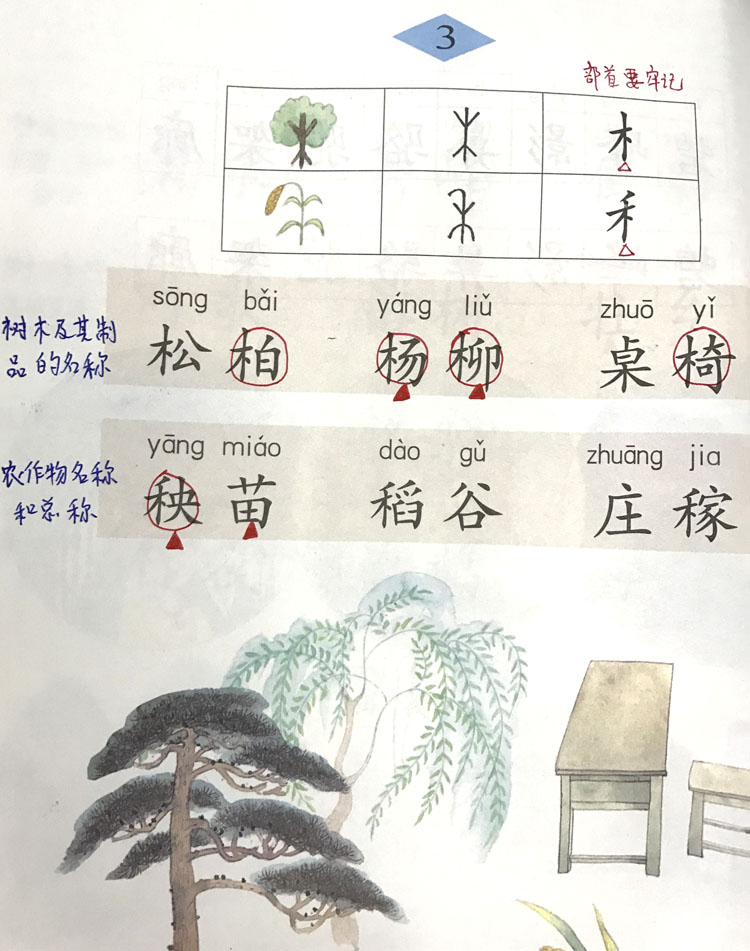 3
部首要牢记
木
禾
sōng bǎi yáng liǔ zhuō yǐ
树木及其制
品的名称
松柏 杨柳 桌椅
yāng miáo dào gǔ zhuāng jia
农作物名称
和总称
秧苗 稻谷 庄稼